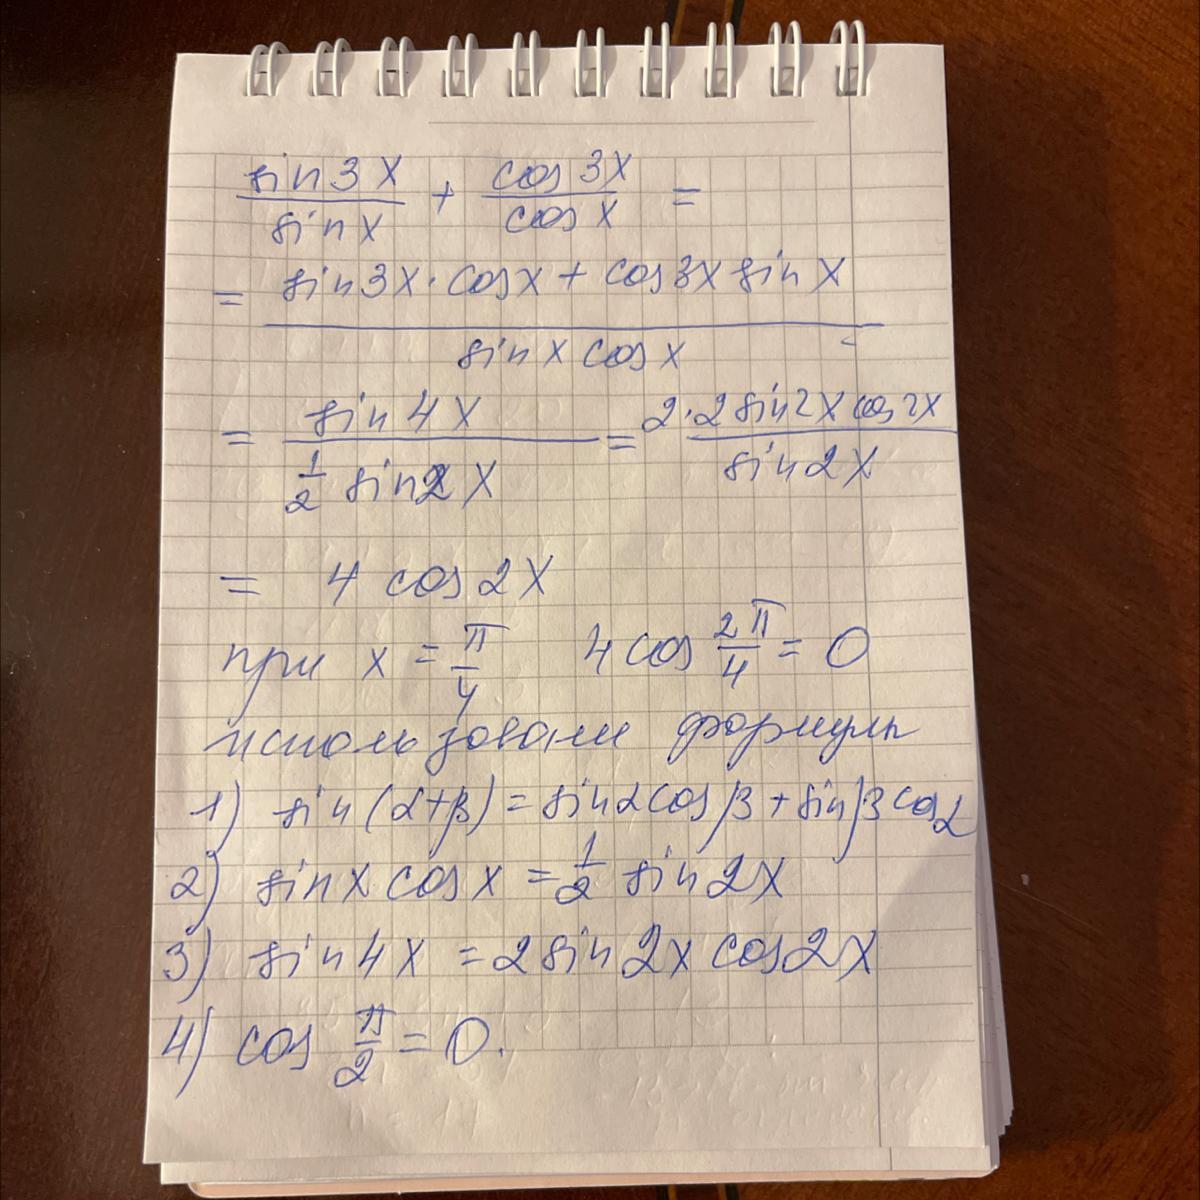 sin3x/sinx + cos3x/cosx =
= (sin3x·cosx + cos3x sinx)/(sinx cosx) =
= sin4x/(1/2 sin2x) = 2·2sin2x cos2x/sin2x
= 4 cos2x
при x = π/4 4cos 2π/4 = 0
использовали формулы
1) sin(α+β) = sinαcosβ + sinβcosα
2) sinx cosx = 1/2 sin2x
3) sin4x = 2sin2x cos2x
4) cos π/2 = 0.